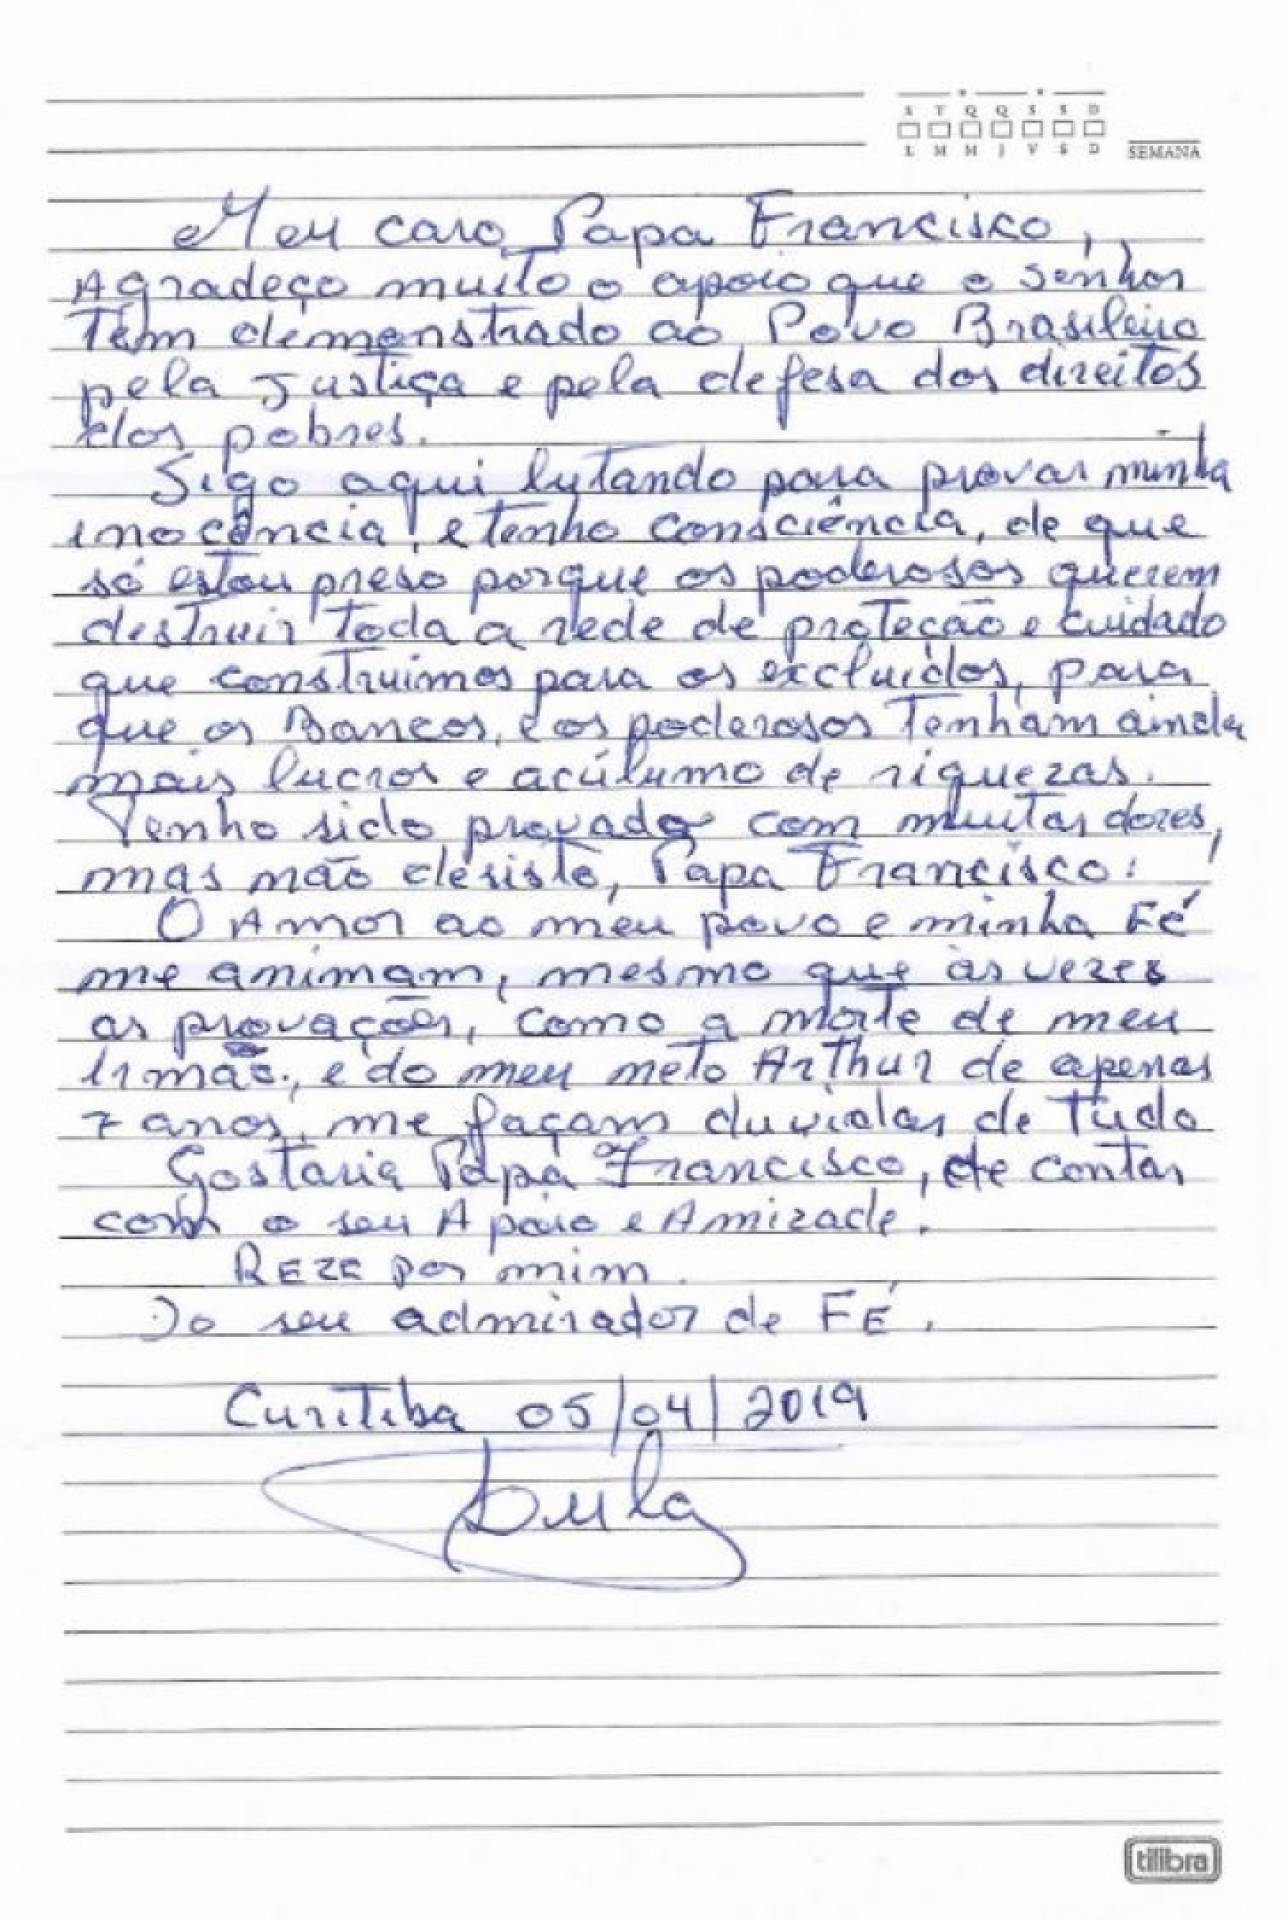 S T Q Q S S D
L M M J V S D
SEMANA
Meu caro Papa Francisco,
Agradeço muito o apoio que o senhor
tem demonstrado ao Povo Brasileiro
pela Justiça e pela defesa dos direitos
dos pobres.
Sigo aqui lutando para provar minha
inocência, e tenho consciência, de que
só estou preso porque os poderosos querem
destruir toda a rede de proteção e cuidado
que construimos para os excluídos, para
que os Bancos, e os poderosos tenham ainda
mais lucros e acúlumo de riquezas.
Tenho sido provado com muitas dores,
mas não desisto, Papa Francisco:
O Amor ao meu povo e minha Fé
me animam, mesmo que às vezes
as provações, como a morte de meu
irmão, e do meu neto Arthur de apenas
7 anos, me façam duvidar de tudo
Gostaria Papa Francisco, de contar
com o seu Apoio e Amizade.
REZE por mim.
Do seu admirador de FÉ.
Curitiba 05/04/2019
Lula
tilibra